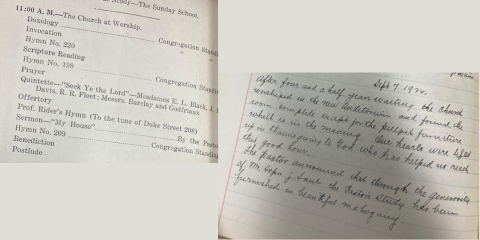 Study—The Sunday School.
11:00 A. M.—The Church at Worship.
Doxology
Invocation ........ Congregation Standi
Hymn No. 220
Scripture Reading
Hymn No. 198
Prayer ........ Congregation Standi
Quintette—"Seek Ye the Lord"—Mesdames E. L. Black, J.
Davis, R. R. Fleet; Messrs. Barclay and Godfriaux
Offertory
Prof. Rider's Hymn (To the tune of Duke Street 208)
Sermon—"My House" ........ By the Pasto
Hymn No. 209 ........ Congregation Standing
Benediction
Postlude
Sept 7 1924.
After four and a half years waiting the church
worshiped in the new Auditorium and found the
room complete except for the pulpit furniture
which is in the making. Our hearts were lifted
up in thanksgiving to God who has helped us reach
this good hour.
The Pastor announced that through the generosity
of Mr. J. Saul the Pastor's Study has been
furnished in beautiful mahogany.